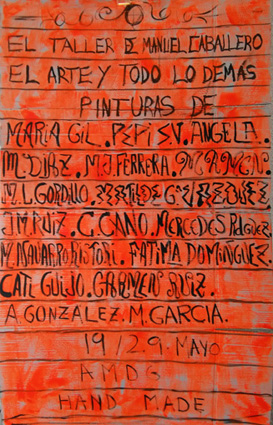 EL TALLER DE MANUEL CABALLERO
EL ARTE Y TODO LO DEMÁS
PINTURAS DE
MARIA GIL. PEPI S.V. ANGELA.
M. DIAZ. M.J. FERRERA. CARMEN.
M.L. GORDILLO. MATILDE
J.M. RUIZ. C. CANO. MERCEDES
M. NAVARRO RISTORI. FATIMA DOMINGUEZ.
CATI GUIJO. CARMEN RUIZ.
A GONZALEZ. M. GARCIA.
19/29. MAYO
AMDG
HAND MADE